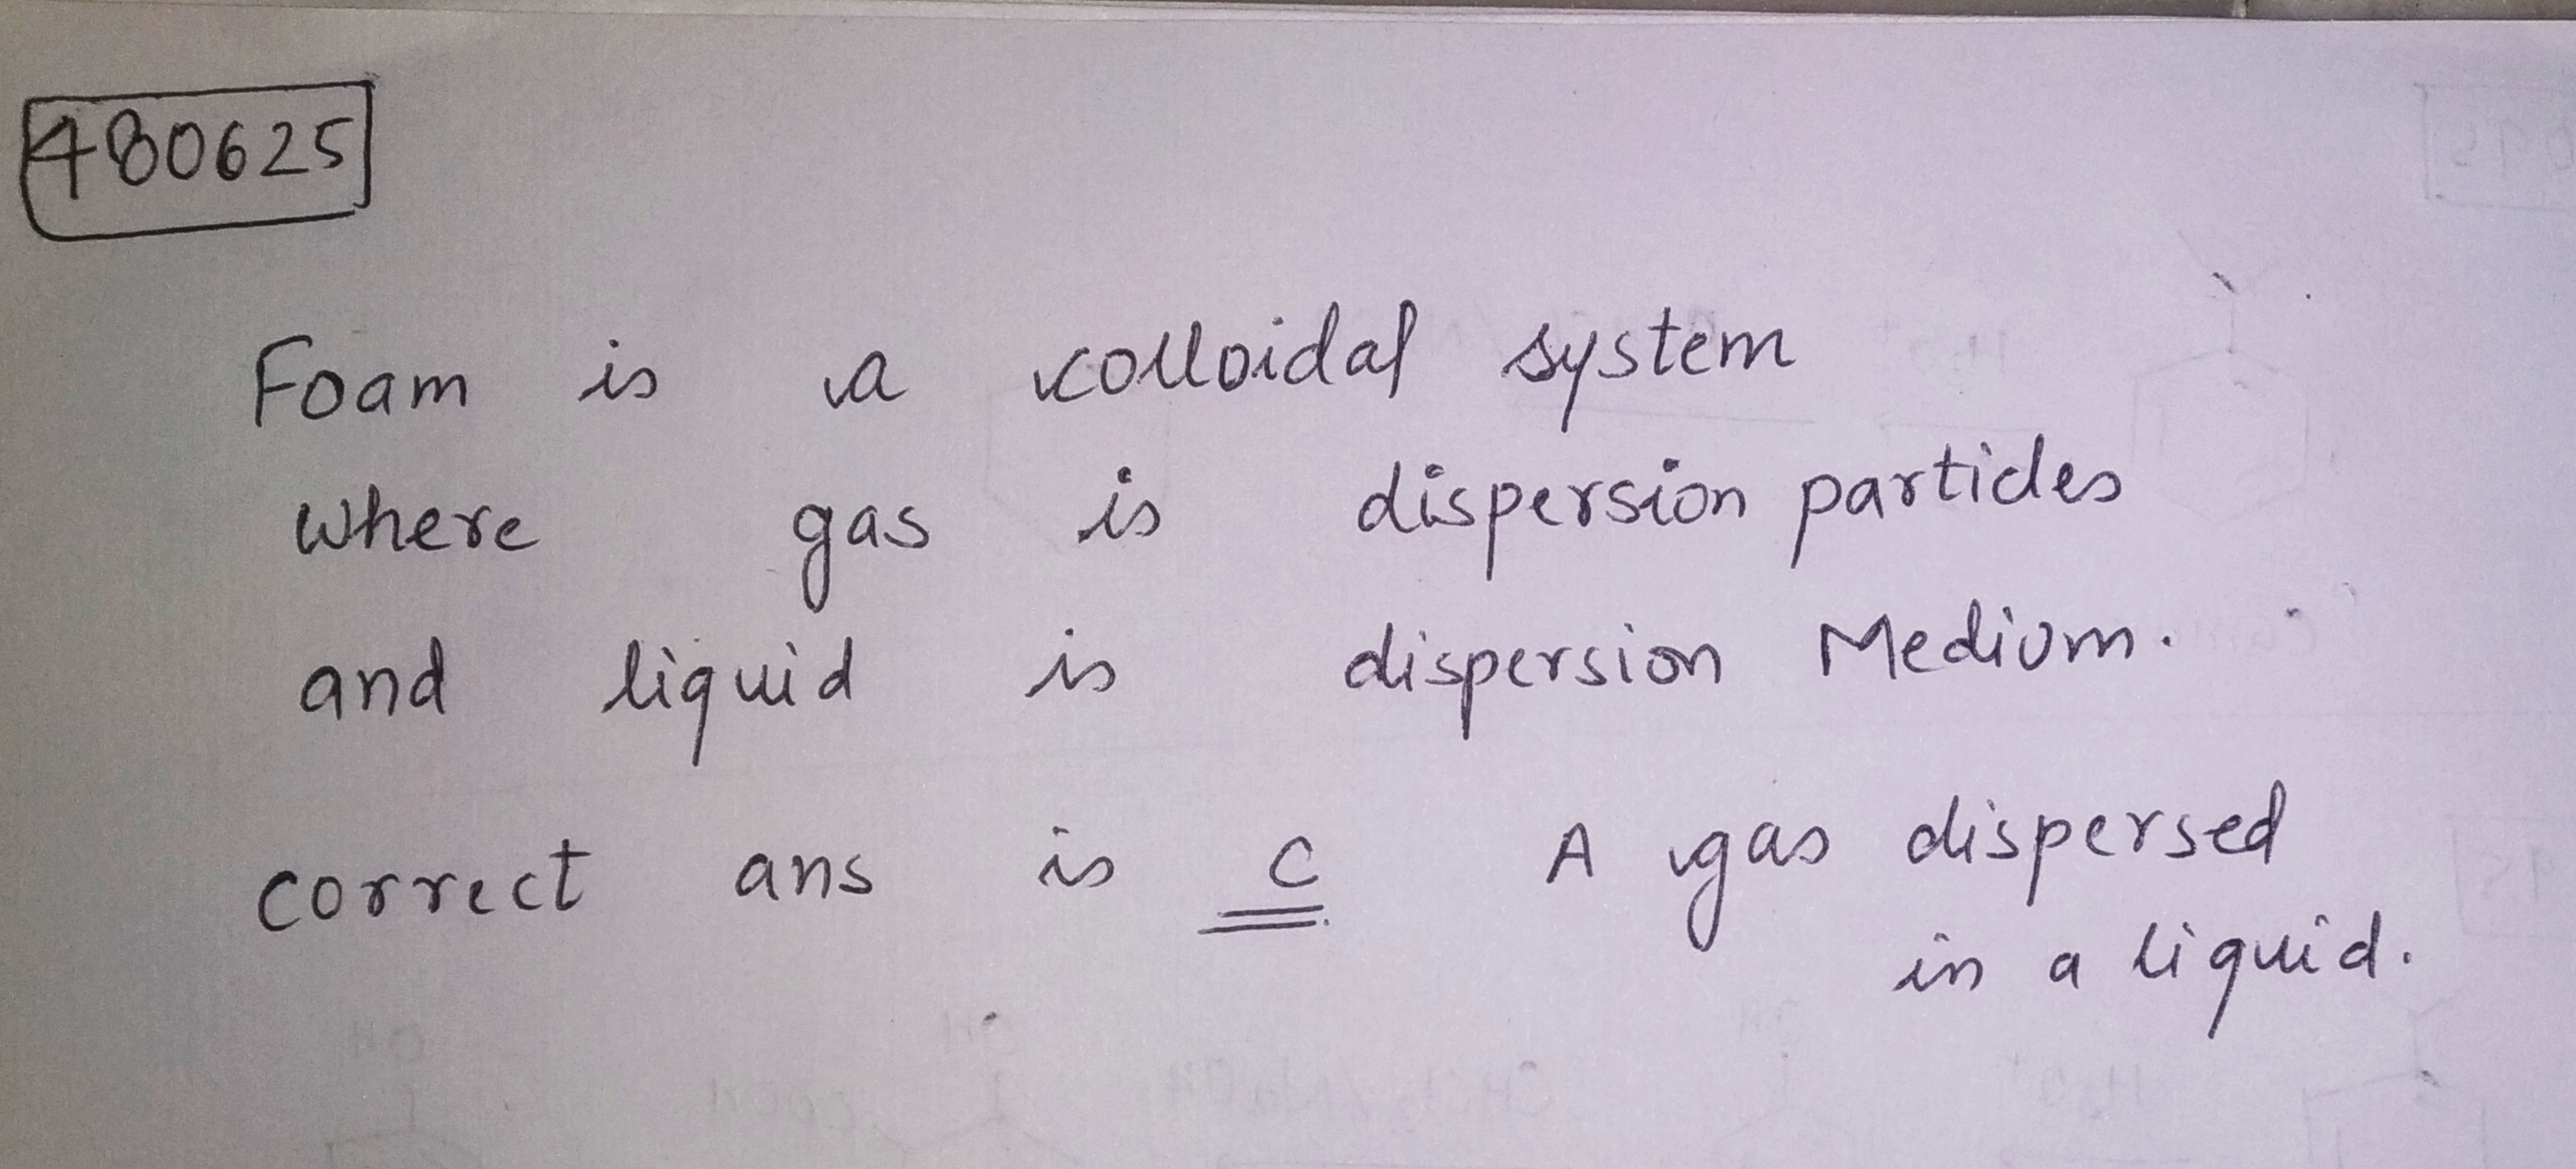 480625
Foam is a colloidal system
where gas is dispersion particles
and liquid is dispersion Medium.
correct ans is C A gas dispersed
in a liquid.